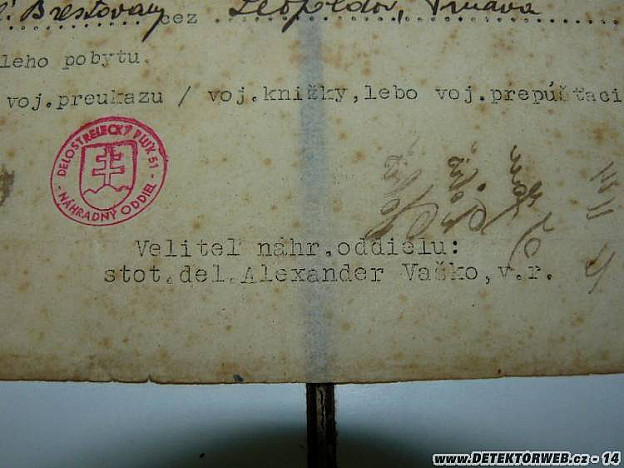 Brestovany cez Leopoldov, Trnava
leho pobytu.
voj.preukazu / voj.knižky,lebo voj.prepúšťaci
DELOSTRELECKÝ PLUK 51
NÁHRADNÝ ODDIEL
Veliteľ náhr.oddielu:
stot.del.Alexander Vaško,v.r.
www.DETEKTORWEB.cz - 14